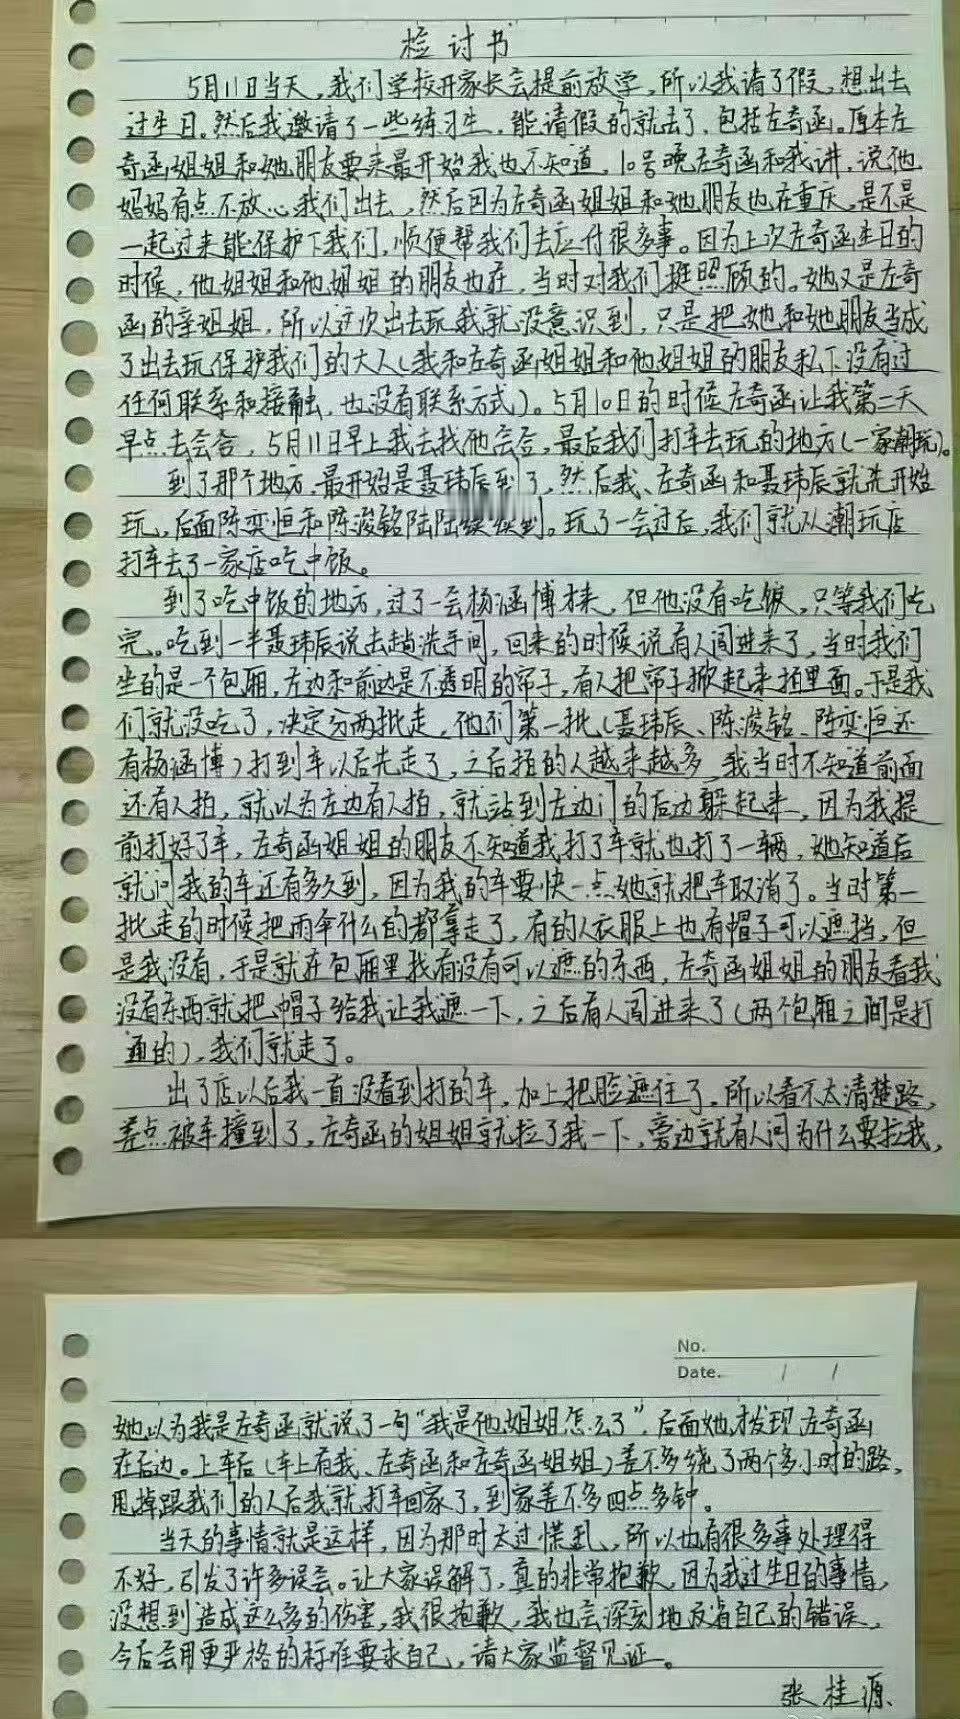 检讨书
5月11日当天，我们学校开家长会提前放学，所以我请了假，想出去
过生日。然后我邀请了一些练习生，能请假的就去了，包括左奇函。原本左
奇函姐姐和她朋友要来最开始我也不知道，10号晚左奇函和我讲，说他
妈妈有点不放心我们出去，然后因为左奇函姐姐和她朋友也在重庆，是不是
一起过来能保护下我们，顺便帮我们去应付很多事。因为上次左奇函生日的
时候，他姐姐和他姐姐的朋友也在，当时对我们挺照顾的。她又是左奇
函的亲姐姐，所以这次出去玩我就没意识到，只是把她和她朋友当成
了出去玩保护我们的大人（我和左奇函姐姐和他姐姐的朋友私下没有过
任何联系和接触，也没有联系方式）。5月10日的时候左奇函让我第二天
早点去会合，5月11日早上我去找他会合，最后我们打车去玩的地方（一家潮玩）。
到了那个地方，最开始是聂玮辰到了，然后我、左奇函和聂玮辰就先开始
玩，后面陈奕恒和陈浚铭陆陆续续到。玩了一会过后，我们就从潮玩店
打车去了一家店吃中饭。
到了吃中饭的地方，过了一会杨涵博才来，但他没有吃饭，只等我们吃
完。吃到一半聂玮辰说去趟洗手间，回来的时候说有人闯进来了，当时我们
坐的是一个包厢，左边和前边是不透明的帘子，有人把帘子掀起来拍里面。于是我
们就没吃了，决定分两批走，他们第一批（聂玮辰、陈浚铭、陈奕恒还
有杨涵博）打到车以后先走了，之后拍的人越来越多，我当时不知道前面
还有人拍，就以为左边有人拍，就站到左边门的后边躲起来，因为我提
前打好了车，左奇函姐姐的朋友不知道我打了车就也打了一辆，她知道后
就问我的车还有多久到，因为我的车要快一点她就把车取消了。当时第一
批走的时候把雨伞什么的都拿走了，有的人衣服上也有帽子可以遮挡，但
是我没有，于是就在包厢里找有没有可以遮的东西，左奇函姐姐的朋友看我
没有东西就把帽子给我让我遮一下，之后有人闯进来了（两个包厢之间是打
通的），我们就走了。
出了店以后我一直没看到打的车，加上把脸遮住了，所以看不太清楚路，
差点被车撞到了，左奇函的姐姐就拉了我一下，旁边就有人问为什么要拉我，
No.
Date. / /
她以为我是左奇函就说了一句“我是他姐姐怎么了”，后面她才发现左奇函
在后边。上车后（车上有我、左奇函和左奇函姐姐）差不多绕了两个多小时的路，
甩掉跟我们的人后我就打车回家了，到家差不多四点多钟。
当天的事情就是这样，因为那时太过慌乱，所以也有很多事处理得
不好，引发了许多误会。让大家误解了，真的非常抱歉，因为我过生日的事情，
没想到造成这么多的伤害，我很抱歉，我也会深刻地反省自己的错误，
今后会用更严格的标准要求自己，请大家监督见证。
张桂源